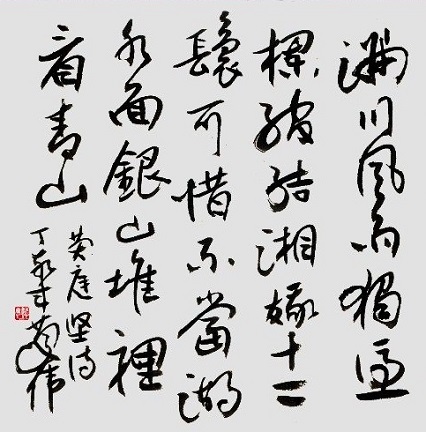 滿川風雨獨憑
欄綰結湘娥十二
鬟可惜不當湖
水面銀山堆裡
看青山
黄庭坚诗
丁亥年伟